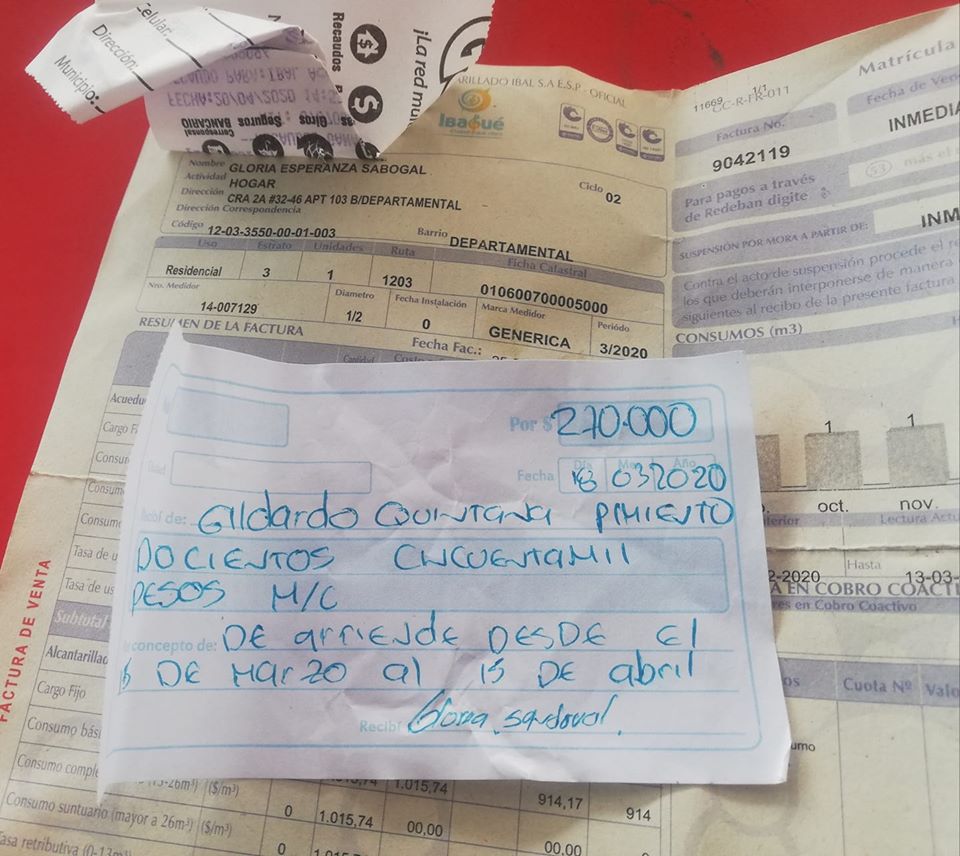 Celular:
Dirección:
Municipio:
Recaudos
¡La red mu
FECHA:20/04/2020
Giros
Seguros
Corresponsal
BANCARIO
ARILLADO IBAL S.A E.S.P. OFICIAL
Ibagué
Nombre GLORIA ESPERANZA SABOGAL
Actividad HOGAR
Ciclo 02
Dirección CRA 2A #32-46 APT 103 B/DEPARTAMENTAL
Dirección Correspondencia
Código 12-03-3550-00-01-003
Barrio DEPARTAMENTAL
Uso Estrato Unidades Ruta Ficha Catastral
Residencial 3 1 1203 010600700005000
Nro. Medidor Diametro Fecha Instalación Marca Medidor Período
14-007129 1/2 0 GENERICA 3/2020
RESUMEN DE LA FACTURA Fecha Fac.:
11669 1/1
CC-R-FR-011
Matrícula
Factura No.
9042119
Fecha de Ven
INMEDIA
Para pagos a través
de Redeban digite
más el
SUSPENSIÓN POR MORA A PARTIR DE: INM
Contra el acto de suspensión procede el re
los que deberán interponerse de manera
siguientes al recibo de la presente factura
CONSUMOS (m3)
1 1
oct. nov.
Lectura Actu
Hasta
2-2020 13-03-
A EN COBRO COACTI
res en Cobro Coactivo
Cuota Nº Valo
Por $ 270.000
Fecha Día Mes Año
03 2020
de: Gildardo QUINTANA PIMIENTO
DOCIENTOS CINCUENTAMIL
PESOS M/C
concepto de: DE arriende DESDE El
DE MARZO al 15 DE abril
Recibí Gloria Sandoval
FACTURA DE VENTA
Acuedu
Cargo Fi
Consum
Consum
Consumo
Tasa de u
Tasa de us
Subtotal
Alcantarillado
Cargo Fijo
Consumo bás
Consumo comple
($/m³) 1.015,74 1.015,74 914,17 914
Consumo suntuario (mayor a 26m³) ($/m³) 0 1.015,74 00,00
Tasa retributiva (0-13m³) 0 00.00